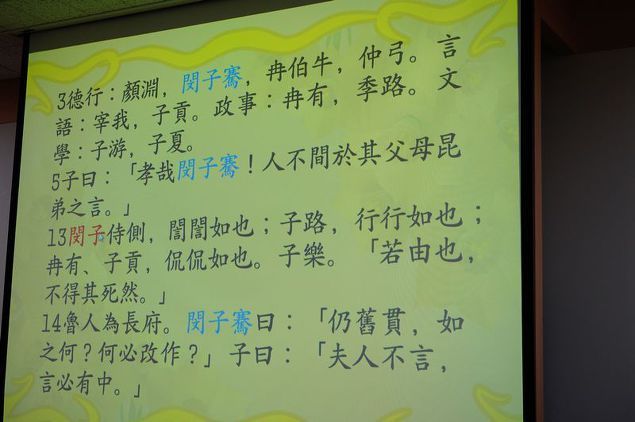 3德行：顏淵，閔子騫，冉伯牛，仲弓。言
語：宰我，子貢。政事：冉有，季路。文
學：子游，子夏。
5子曰：「孝哉閔子騫！人不間於其父母昆
弟之言。」
13閔子侍側，誾誾如也；子路，行行如也；
冉有、子貢，侃侃如也。子樂。「若由也，
不得其死然。」
14魯人為長府。閔子騫曰：「仍舊貫，如
之何？何必改作？」子曰：「夫人不言，
言必有中。」